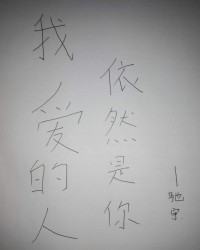 我爱的人
依然是你
—驰宇